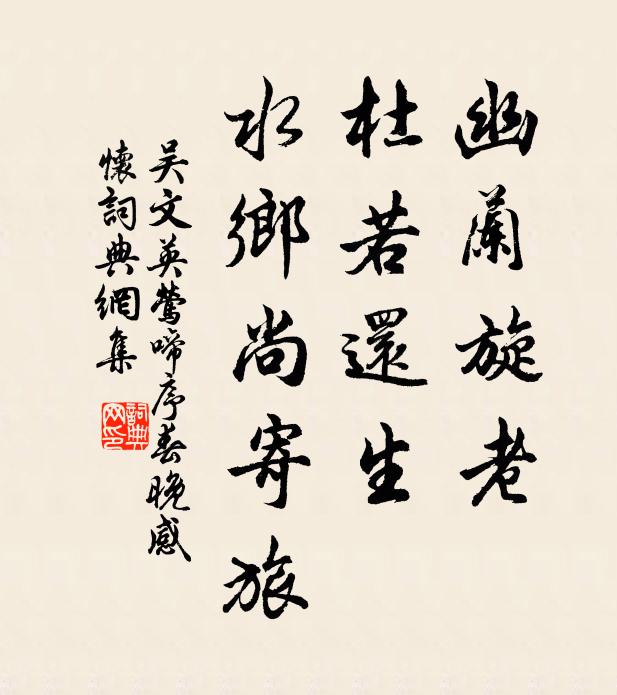 幽蘭旋老
杜若還生
水鄉尚寄旅
吴文英鶯啼序春晚感
懷詞典網集
詞典
网印